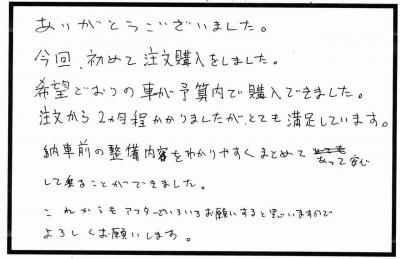 ありがとうございました。
今回、初めて注文購入をしました。
希望どおりの車が予算内で購入できました。
注文から2ヵ月程かかりましたが、とても満足しています。
納車前の整備内容をわかりやすくまとめてあって安心
して乗ることができました。
これからもアフターでいろいろお願いすると思いますので
よろしくお願いします。